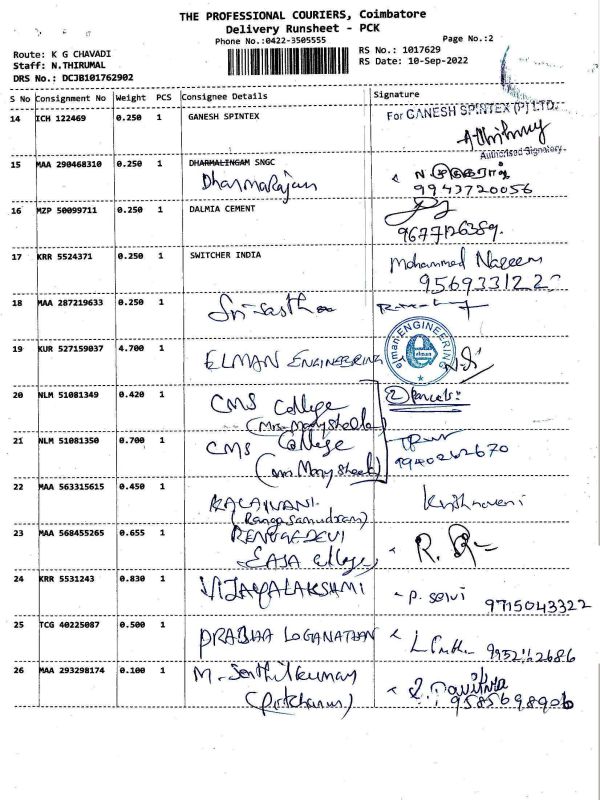 THE PROFESSIONAL COURIERS, Coimbatore
Delivery Runsheet - PCK
Phone No.:0422-3505555 Page No.:2
Route: K G CHAVADI RS No.: 1017629
Staff: N.THIRUMAL RS Date: 10-Sep-2022
DRS No.: DCJB101762902
S No Consignment No Weight PCS Consignee Details Signature
14 ICH 122469 0.250 1 GANESH SPINTEX For GANESH SPINTEX (P) LTD.
Authorised Signatory
15 MAA 290468310 0.250 1 DHARMALINGAM SNGC
Dharmarajan 9943720056
16 MZP 50099711 0.250 1 DALMIA CEMENT
9677126389.
17 KRR 5524371 0.250 1 SWITCHER INDIA Mohammed Nazeem
18 MAA 287219633 0.250 1 Sri-Sastha
19 KUR 527159037 4.700 1 ELMAN ENGINEERING Elman ENGINEERING
elman
20 NLM 51081349 0.420 1 CMS College 2 parcels:
21 NLM 51081350 0.700 1 CMS College
9940262670
22 MAA 563315615 0.450 1 KALAIVANI. Krishnaveni
(Rangasamudram)
23 MAA 568455265 0.655 1 RENUGADEVI
EASA College R.
24 KRR 5531243 0.830 1 VIJAYALAKSHMI P. Selvi 9715043322
25 TCG 40225087 0.500 1 PRABHA LOGANATHAN
26 MAA 293298174 0.100 1 M. Senthilkumar
9585698906